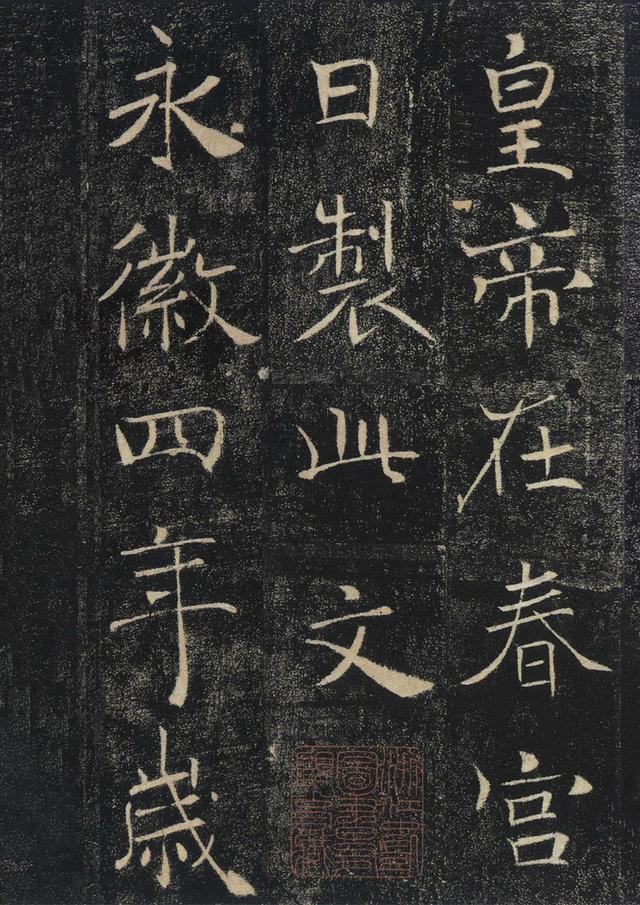 皇帝在春宮
日製此文
永徽四年歲